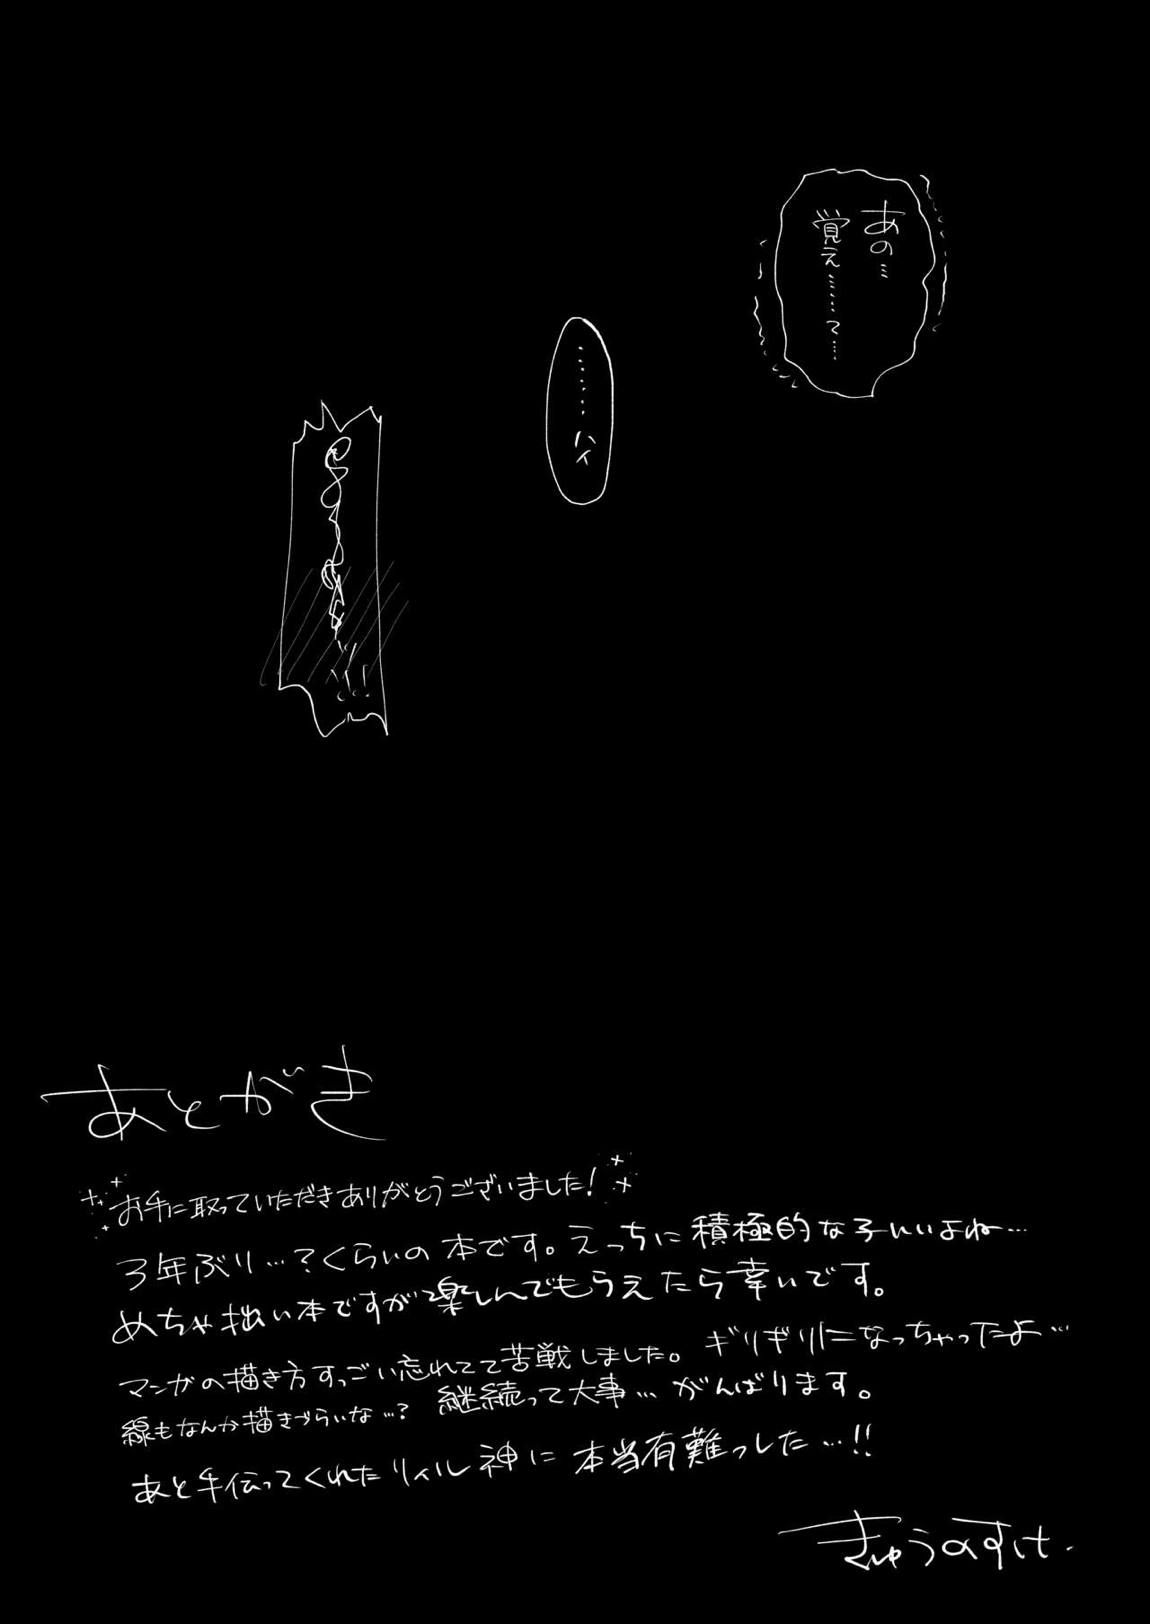 あの…
覚え……て…
………ハイ
あとがき
お手に取っていただきありがとうございました!
3年ぶり…?くらいの本です。えっちに積極的な子いいよね…
めちゃ拙い本ですが楽しんでもらえたら幸いです。
マンガの描き方すっごい忘れてて苦戦しました。ギリギリになっちゃったよ…
線もなんか描きづらいな…?継続って大事…がんばります。
あと手伝ってくれたリィル神に本当有難っした…!!
きゅうのすけ.